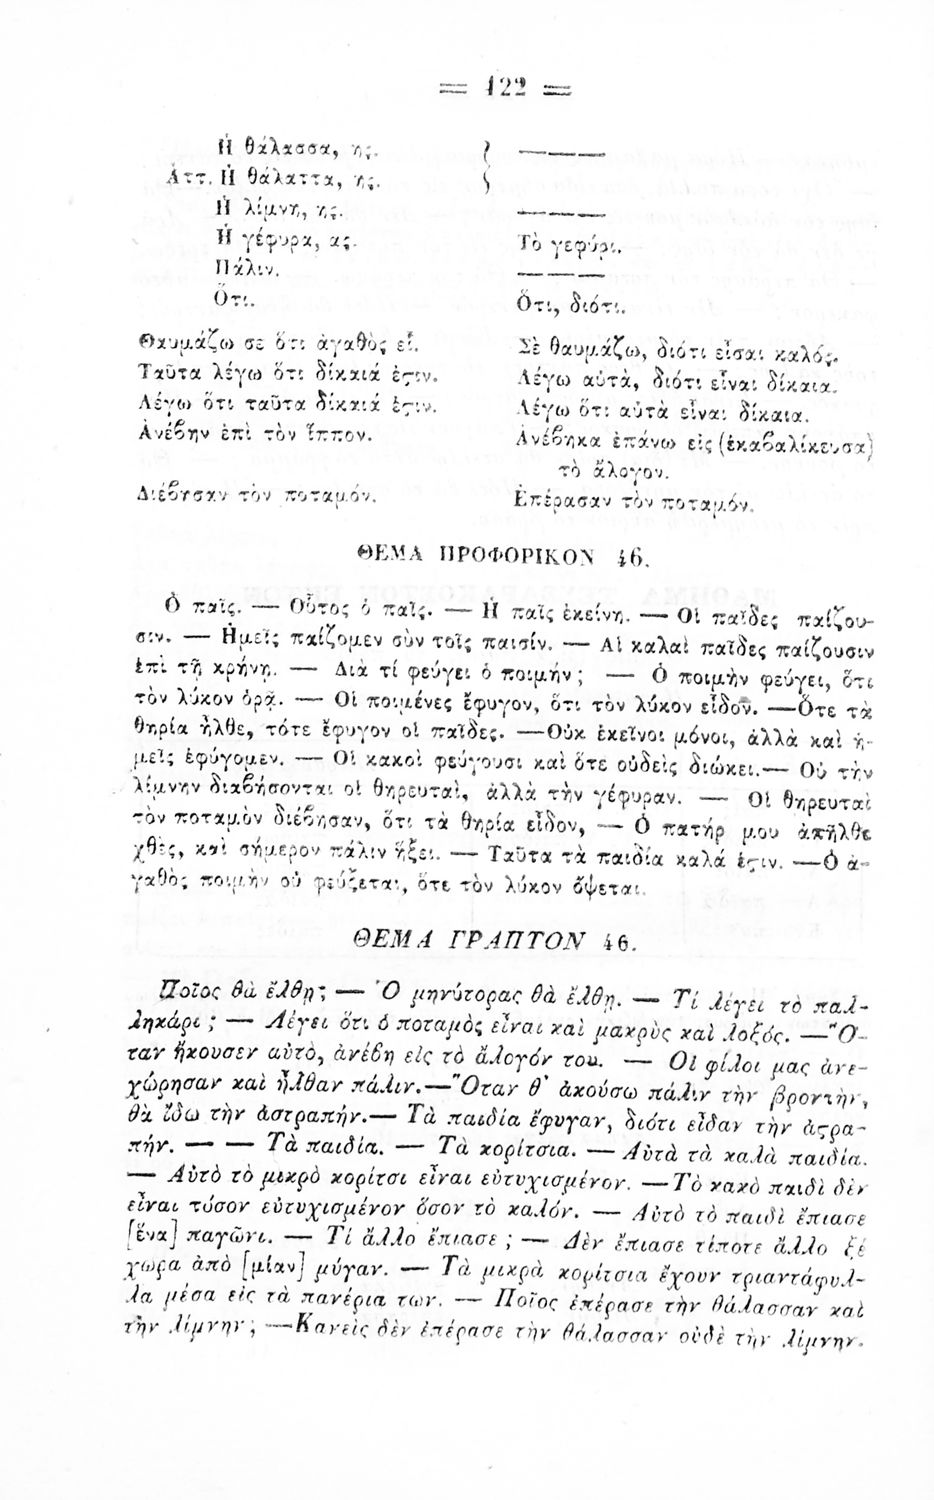 = 122 =
Ἡ θάλασσα, ης. } ———
Ἀττ. Ἡ θάλαττα, ης.
Ἡ λίμνη, ης. ———
Ἡ γέφυρα, ας. Τὸ γεφύρι.
Πάλιν. ———
Ὅτι. Ὅτι, διότι.
Θαυμάζω σε ὅτι ἀγαθὸς εἶ. Σὲ θαυμάζω, διότι εἶσαι καλός.
Ταῦτα λέγω ὅτι δίκαιά ἐςιν. Λέγω αὐτὰ, διότι εἶναι δίκαια.
Λέγω ὅτι ταῦτα δίκαιά ἐςιν. Λέγω ὅτι αὐτὰ εἶναι δίκαια.
Ἀνέβην ἐπὶ τὸν ἵππον. Ἀνέβηκα ἐπάνω εἰς (ἐκαβαλίκευσα)
τὸ ἄλογον.
Διέβησαν τὸν ποταμόν. Ἐπέρασαν τὸν ποταμόν.
ΘΕΜΑ ΠΡΟΦΟΡΙΚΟΝ 46.
Ὁ παῖς. — Οὗτος ὁ παῖς. — Ἡ παῖς ἐκείνη. — Οἱ παῖδες παίζου-
σιν. — Ἡμεῖς παίζομεν σὺν τοῖς παισίν. — Αἱ καλαὶ παῖδες παίζουσιν
ἐπὶ τῇ κρήνῃ. — Διὰ τί φεύγει ὁ ποιμήν; — Ὁ ποιμὴν φεύγει, ὅτι
τὸν λύκον ὁρᾷ. — Οἱ ποιμένες ἔφυγον, ὅτι τὸν λύκον εἶδον. —Ὅτε τὰ
θηρία ἦλθε, τότε ἔφυγον οἱ παῖδες. —Οὐκ ἐκεῖνοι μόνοι, ἀλλὰ καὶ ἡ-
μεῖς ἐφύγομεν. — Οἱ κακοὶ φεύγουσι καὶ ὅτε οὐδεὶς διώκει.— Οὐ τὴν
λίμνην διαβήσονται οἱ θηρευταὶ, ἀλλὰ τὴν γέφυραν. — Οἱ θηρευταὶ
τὸν ποταμὸν διέβησαν, ὅτι τὰ θηρία εἶδον, — Ὁ πατήρ μου ἀπῆλθε
χθὲς, καὶ σήμερον πάλιν ἥξει. — Ταῦτα τὰ παιδία καλά ἐςιν. —Ὁ ἀ-
γαθὸς ποιμὴν οὐ φεύξεται, ὅτε τὸν λύκον ὄψεται.
ΘΕΜΑ ΓΡΑΠΤΟΝ 46.
Ποῖος θὰ ἔλθῃ; — Ὁ μηνύτορας θὰ ἔλθῃ. — Τί λέγει τὸ παλ-
ληκάρι; — Λέγει ὅτι ὁ ποταμὸς εἶναι καὶ μακρὺς καὶ λοξός. —Ὅ-
ταν ἤκουσεν αὐτὸ, ἀνέβη εἰς τὸ ἄλογόν του. — Οἱ φίλοι μας ἀνε-
χώρησαν καὶ ἦλθαν πάλιν.—Ὅταν θ' ἀκούσω πάλιν τὴν βροντὴν,
θὰ ἴδω τὴν ἀστραπήν.— Τὰ παιδία ἔφυγαν, διότι εἶδαν τὴν ἀςρα-
πήν. — — Τὰ παιδία. — Τὰ κορίτσια. — Αὐτὰ τὰ καλὰ παιδία.
— Αὐτὸ τὸ μικρὸ κορίτσι εἶναι εὐτυχισμένον. —Τὸ κακὸ παιδὶ δὲν
εἶναι τόσον εὐτυχισμένον ὅσον τὸ καλόν. — Αὐτὸ τὸ παιδὶ ἔπιασε
[ἕνα] παγῶνι. — Τί ἄλλο ἔπιασε; — Δὲν ἔπιασε τίποτε ἄλλο ξέ
χωρα ἀπὸ [μίαν] μύγαν. — Τὰ μικρὰ κορίτσια ἔχουν τριαντάφυλ-
λα μέσα εἰς τὰ πανέρια των. — Ποῖος ἐπέρασε τὴν θάλασσαν καὶ
τὴν λίμνην; —Κανεὶς δὲν ἐπέρασε τὴν θάλασσαν οὐδὲ τὴν λίμνην.